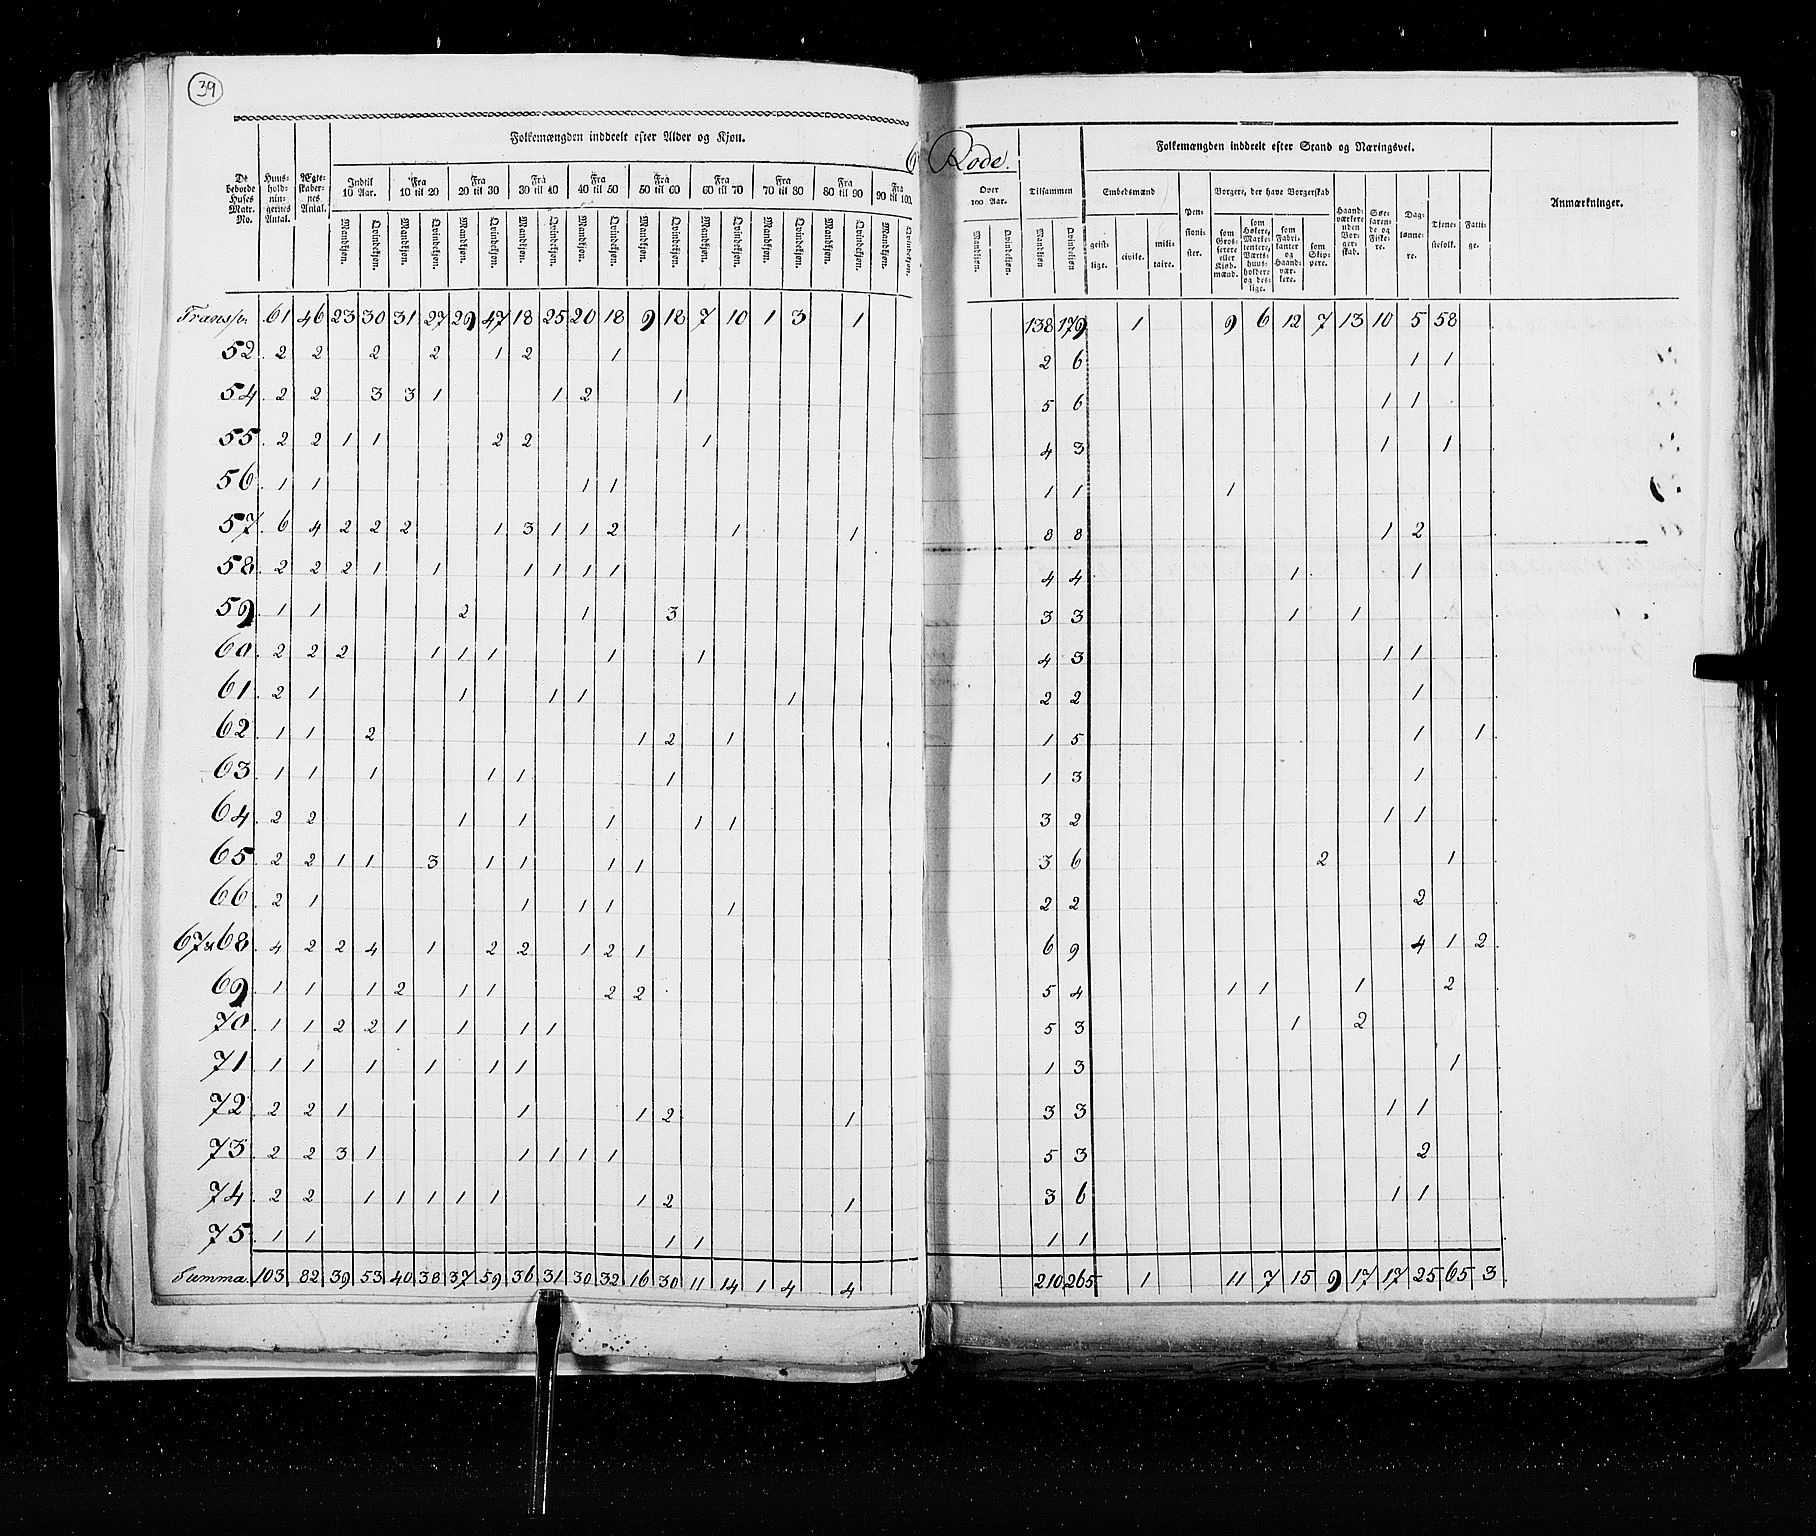 39
Folkemængden inddeelt efter Alder og Kjøn.
6 Rode.
Folkemængden inddeelt efter Stand og Næringsvei.
De beboede Huses Matr. No. | Huus-hold-nin-gernes Antal. | Ægte-skaber-nes Antal. | Indtil 10 Aar. | Fra 10 til 20 | Fra 20 til 30 | Fra 30 til 40 | Fra 40 til 50 | Fra 50 til 60 | Fra 60 til 70 | Fra 70 til 80 | Fra 80 til 90 | Fra 90 til 100. | Over 100 Aar. | Tilsammen | Embedsmænd | Pen-sioni-ster. | Borgere, der have Borgerskab | Haand-værkere uden Bor-ger-skab. | Søe-faren-de og Fiske-re. | Dag-lønne-re. | Tiene-stefolk. | Fatti-ge. | Anmærkninger.
Mandkjøn. Qvindekjøn. Mandkjøn. Qvindekjøn. Mandkjøn. Qvindekjøn. Mandkjøn. Qvindekjøn. Mandkjøn. Qvindekjøn. Mandkjøn. Qvindekjøn. Mandkjøn. Qvindekjøn. Mandkjøn. Qvindekjøn. Mandkjøn. Qvindekjøn. Mandkjøn. Qvindekjøn. Mandkjøn. Qvindekjøn. Mandkjøn Qvindekjøn | geist-lige. | civile. | mili-taire. | som Gros-serere eller Kjøb-mænd. | som Høkere, Marke-tentere, Værts-huus-holdere og des-lige. | som Fabri-kanter og Haand-vær-kere. | som Skip-pere.
Transp. 61 46 23 30 31 27 29 47 18 25 20 18 9 18 7 10 1 3 1 138 179 1 9 6 12 7 13 10 5 58
52 2 2 2 2 1 2 1 2 6 1 1
54 2 2 3 3 1 1 2 1 5 6 1 1
55 2 2 1 1 2 2 1 4 3 1 1
56 1 1 1 1 1 1 1
57 6 4 2 2 2 1 3 1 1 2 1 1 8 8 1 2
58 2 2 2 1 1 1 1 1 1 4 4 1 1
59 1 1 2 1 3 3 3 1 1
60 2 2 2 1 1 1 1 1 4 3 1 1
61 2 1 1 1 1 1 2 2 1
62 1 1 2 1 2 1 1 5 1 1
63 1 1 1 1 1 1 1 3 1
64 2 2 1 1 1 1 1 3 2 1 1
65 2 2 1 1 3 1 1 1 1 3 6 2 1
66 2 1 1 1 1 1 2 2 2
67 & 68 4 2 2 4 1 2 2 1 2 1 6 9 4 1 2
69 1 1 1 2 1 1 2 2 5 4 1 1 1 2
70 1 1 2 2 1 1 1 1 5 3 1 2
71 1 1 1 1 1 1 1 3 1
72 2 2 1 1 1 2 1 3 3 1 1
73 2 2 3 1 1 1 1 1 5 3 2
74 2 2 1 1 1 1 1 1 2 1 3 6 1 1
75 1 1 1 1 1 1
Summa. 103 82 39 53 40 38 37 59 36 31 30 32 16 30 11 14 1 4 4 210 265 1 11 7 15 9 17 17 25 65 3